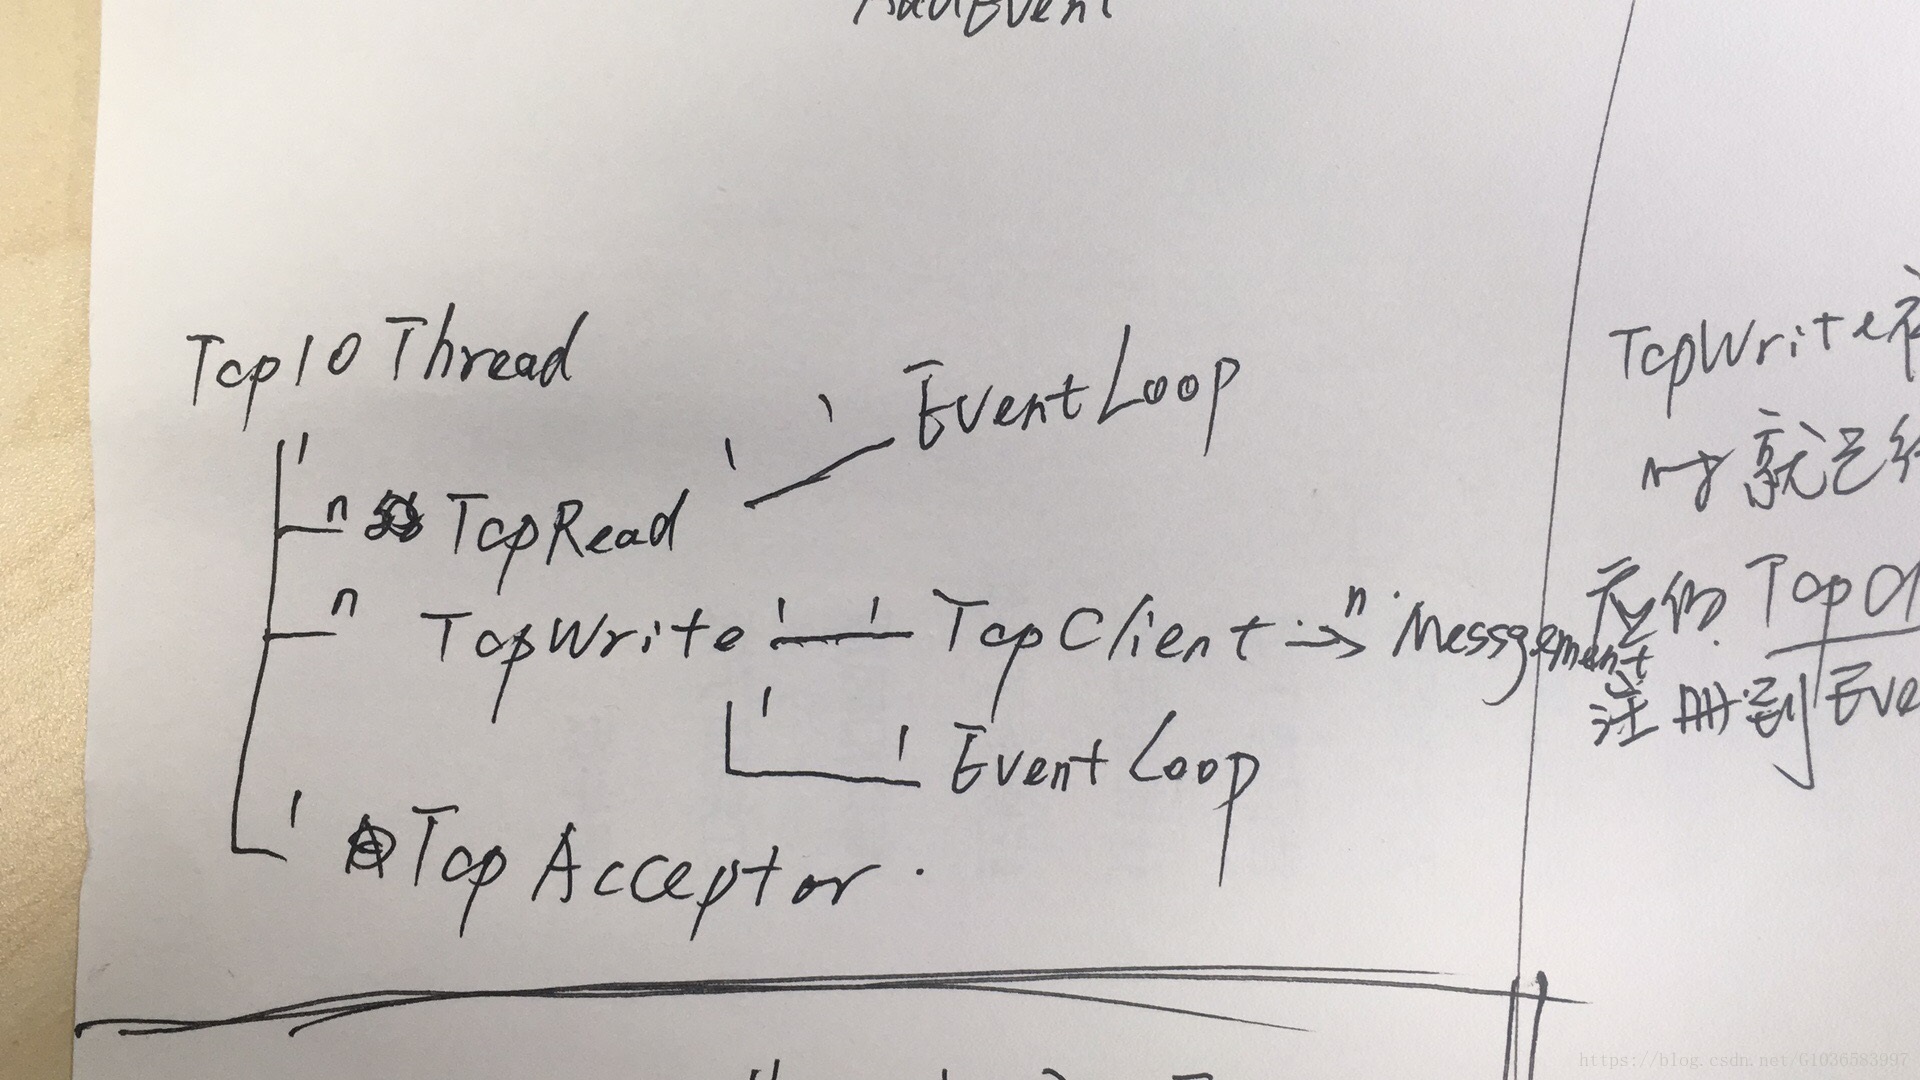 AddEvent
TcpIOThread
1
1 1 EventLoop
n TcpRead
n TcpWrite 1 1 TcpClient → n Messgement
1 1 EventLoop
1 TcpAcceptor.
TcpWrite
就已
应的 TcpCl
注册到 Eve
https://blog.csdn.net/G1036583997